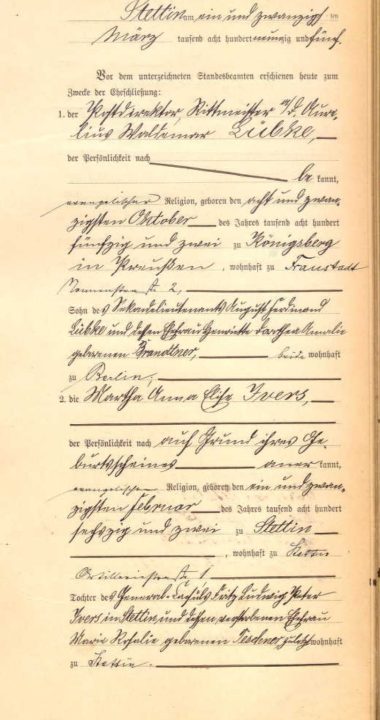 Stettin am ein und zwanzigsten
März tausend acht hundert neunzig und fünf.
Vor dem unterzeichneten Standesbeamten erschienen heute zum
Zwecke der Eheschließung:
1. der Postdirektor Rittmeister a/D. Aure-
lius Waldemar Lübke,
der Persönlichkeit nach
be kannt,
evangelischer Religion, geboren den acht und zwan-
zigsten Oktober des Jahres tausend acht hundert
fünfzig und zwei zu Königsberg
in Preußen, wohnhaft zu Fraustadt
2,
Sohn des Sekondelieutenants August Ferdinand
Lübke und dessen Ehefrau Henriette Dorthea Amalie
geborenen Brandtner, beide wohnhaft
zu Berlin,
2. die Martha Anna Elise Ivers,
der Persönlichkeit nach auf Grund ihres Ge-
burtsscheines aner kannt,
evangelischer Religion, geboren den ein und zwan-
zigsten Februar des Jahres tausend acht hundert
sechszig und zwei zu Stettin
, wohnhaft zu Stettin
Artilleriestraße 1
Tochter des General-Consuls Fritz Ludwig Peter
Ivers in Stettin und dessen verstorbenen Ehefrau
Marie Rosalie geborenen Teschner zuletzt wohnhaft
zu Stettin.